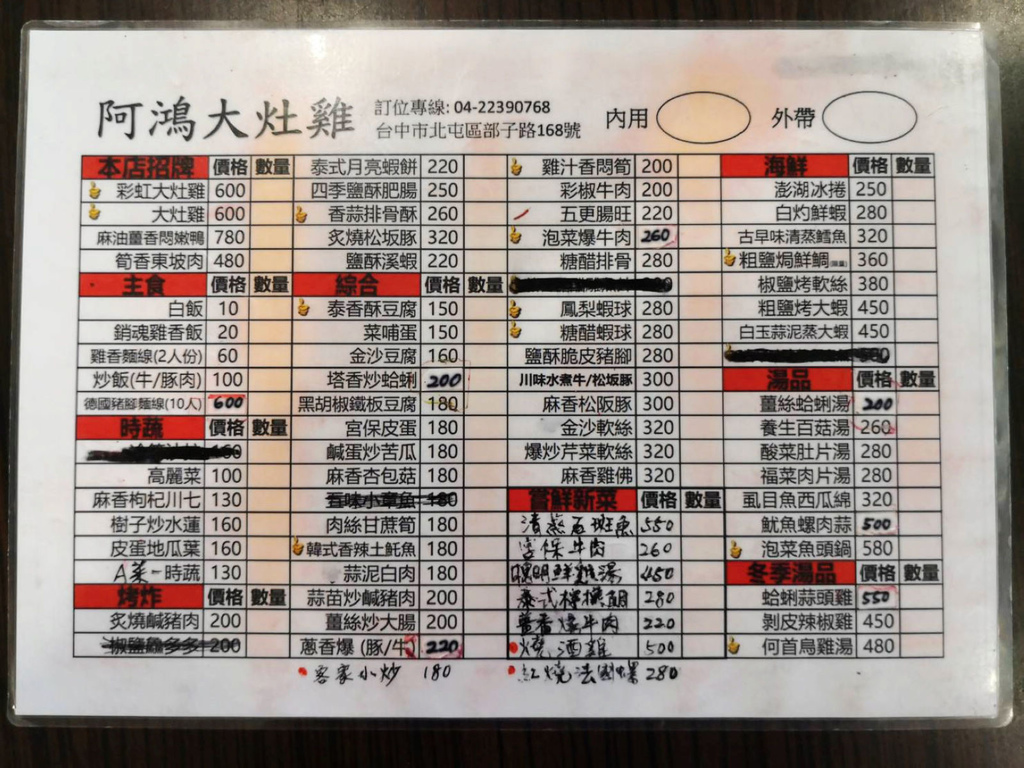 阿鴻大灶雞
訂位專線: 04-22390768
台中市北屯區部子路168號
內用
外帶
本店招牌 價格 數量
彩虹大灶雞 600
大灶雞 600
麻油薑香悶嫩鴨 780
筍香東坡肉 480
主食 價格 數量
白飯 10
銷魂雞香飯 20
雞香麵線(2人份) 60
炒飯(牛/豚肉) 100
德國豬腳麵線(10人) 600
時蔬 價格 數量
高麗菜 100
麻香枸杞川七 130
樹子炒水蓮 160
皮蛋地瓜葉 160
A菜-時蔬 130
烤炸 價格 數量
炙燒鹹豬肉 200
椒鹽雞多多 200
泰式月亮蝦餅 220
四季鹽酥肥腸 250
香蒜排骨酥 260
炙燒松坂豚 320
鹽酥溪蝦 220
綜合 價格 數量
泰香酥豆腐 150
菜哺蛋 150
金沙豆腐 160
塔香炒蛤蜊 200
黑胡椒鐵板豆腐 180
宮保皮蛋 180
鹹蛋炒苦瓜 180
麻香杏包菇 180
五味小章魚 180
肉絲甘蔗筍 180
韓式香辣土魠魚 180
蒜泥白肉 180
蒜苗炒鹹豬肉 200
薑絲炒大腸 200
蔥香爆 (豚/牛) 220
客家小炒 180
雞汁香悶筍 200
彩椒牛肉 200
五更腸旺 220
泡菜爆牛肉 260
糖醋排骨 280
鳳梨蝦球 280
糖醋蝦球 280
鹽酥脆皮豬腳 280
川味水煮牛/松坂豚 300
麻香松阪豚 300
金沙軟絲 320
爆炒芹菜軟絲 320
麻香雞佛 320
嘗鮮新菜 價格 數量
清蒸石斑魚 550
宮保牛肉 260
蛤蜊鮮雞湯 450
泰式檸檬鯛 280
薑香燒牛肉 220
燒酒雞 500
紅燒法國螺 280
海鮮 價格 數量
澎湖冰捲 250
白灼鮮蝦 280
古早味清蒸鱈魚 320
粗鹽焗鮮鯛(限量) 360
椒鹽烤軟絲 380
粗鹽烤大蝦 450
白玉蒜泥蒸大蝦 450
湯品 價格 數量
薑絲蛤蜊湯 200
養生百菇湯 260
酸菜肚片湯 280
福菜肉片湯 280
虱目魚西瓜綿 320
魷魚螺肉蒜 500
泡菜魚頭鍋 580
冬季湯品 價格 數量
蛤蜊蒜頭雞 550
剝皮辣椒雞 450
何首烏雞湯 480